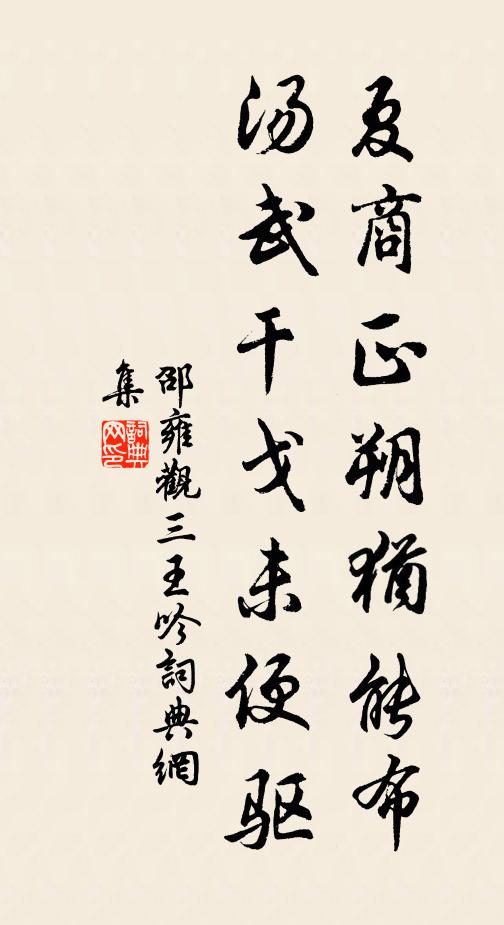 夏商正朔猶能布
汤武干戈未便驱
邵雍觀三王吟詞典網
集
詞典網印